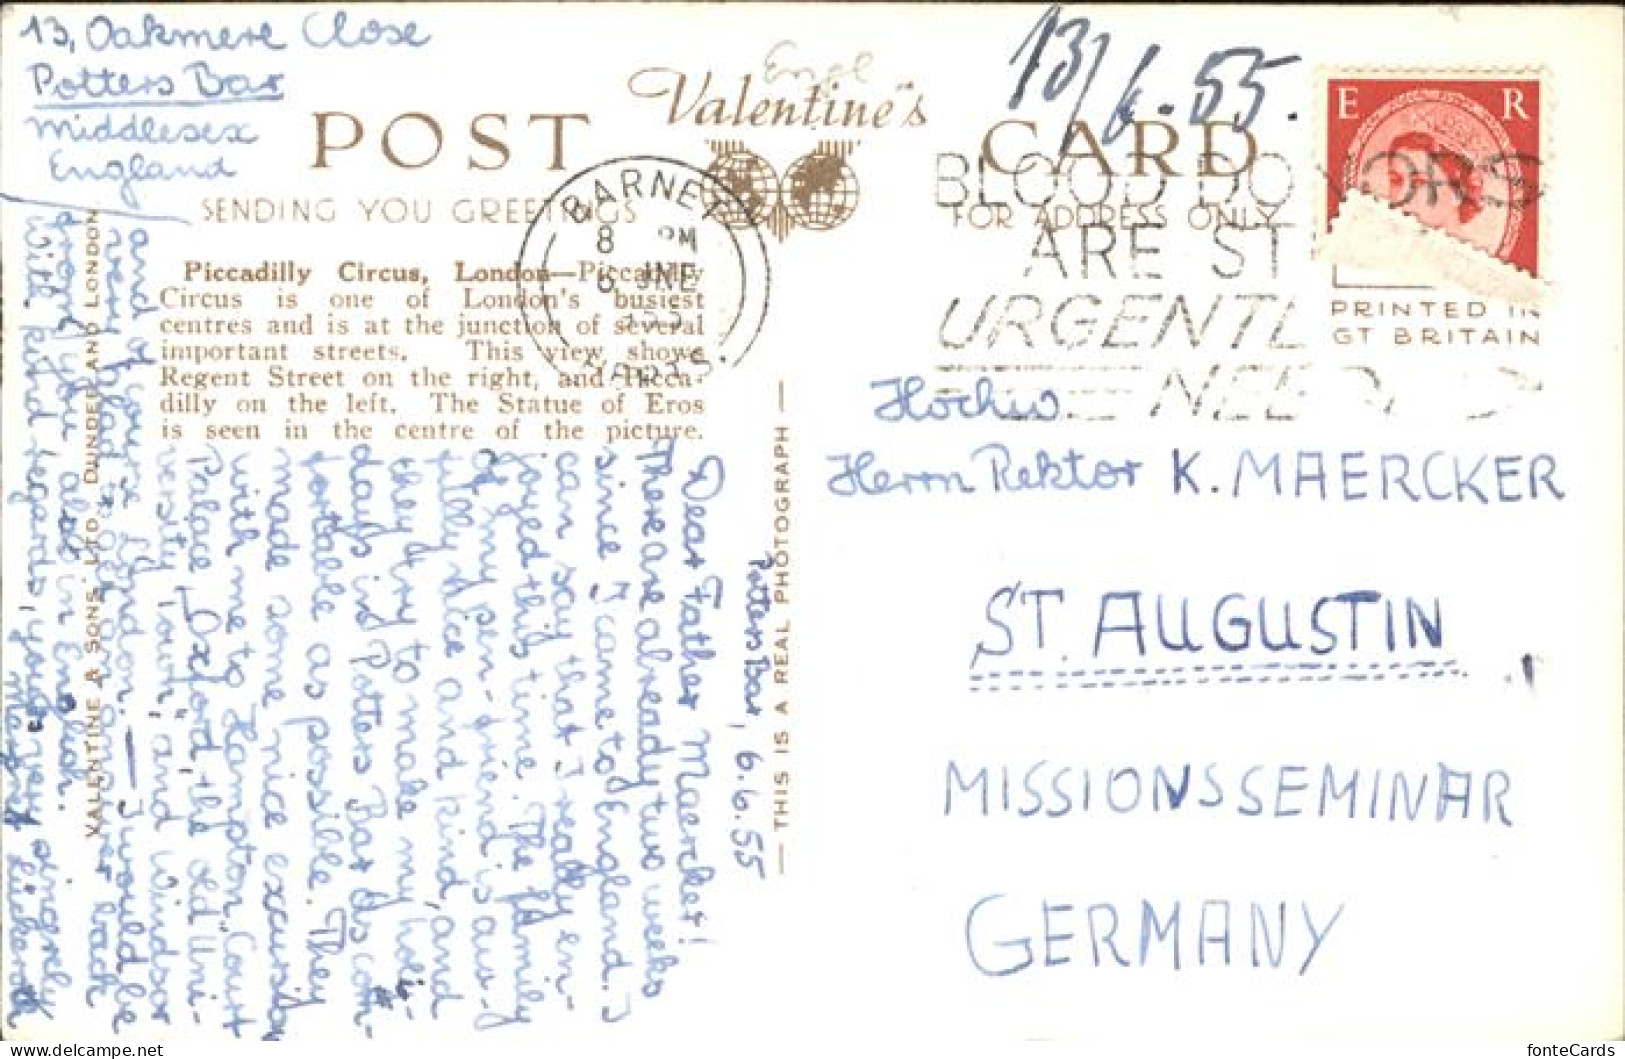 13, Oakmere Close
Potters Bar
Middlesex
England
POST
Engl
Valentine's
CARD
13/6.55.
SENDING YOU GREETINGS
FOR ADDRESS ONLY
BARNET
8 PM
6 JNE
HERTS
BLOOD DONORS
ARE ST
URGENTL
NEED
E R
PRINTED IN
GT BRITAIN
Piccadilly Circus, London—Piccadilly
Circus is one of London's busiest
centres and is at the junction of several
important streets. This view shows
Regent Street on the right, and Picca-
dilly on the left. The Statue of Eros
is seen in the centre of the picture.
Hochw.
Herrn Rektor K. MAERCKER
ST. AUGUSTIN
MISSIONSSEMINAR
GERMANY
— THIS IS A REAL PHOTOGRAPH —
VALENTINE & SONS, LTD., DUNDEE AND LONDON
Potters Bar, 6.6.55
Dear Father Maercker!
There are already two weeks
since I came to England. I
can say that I really en-
joyed this time. The family
of my pen-friend is aw-
fully nice and kind, and
they try to make my holi-
days in Potters Bar as com-
fortable as possible. They
made some nice excursion
with me to "Hampton Court
Palace", Oxford, the old "Uni-
versity Town", and Windsor
and of course London. — I would be
very glad to get an answer back
from you, also in English.
With kind regards, yours very sincerely
Margrit